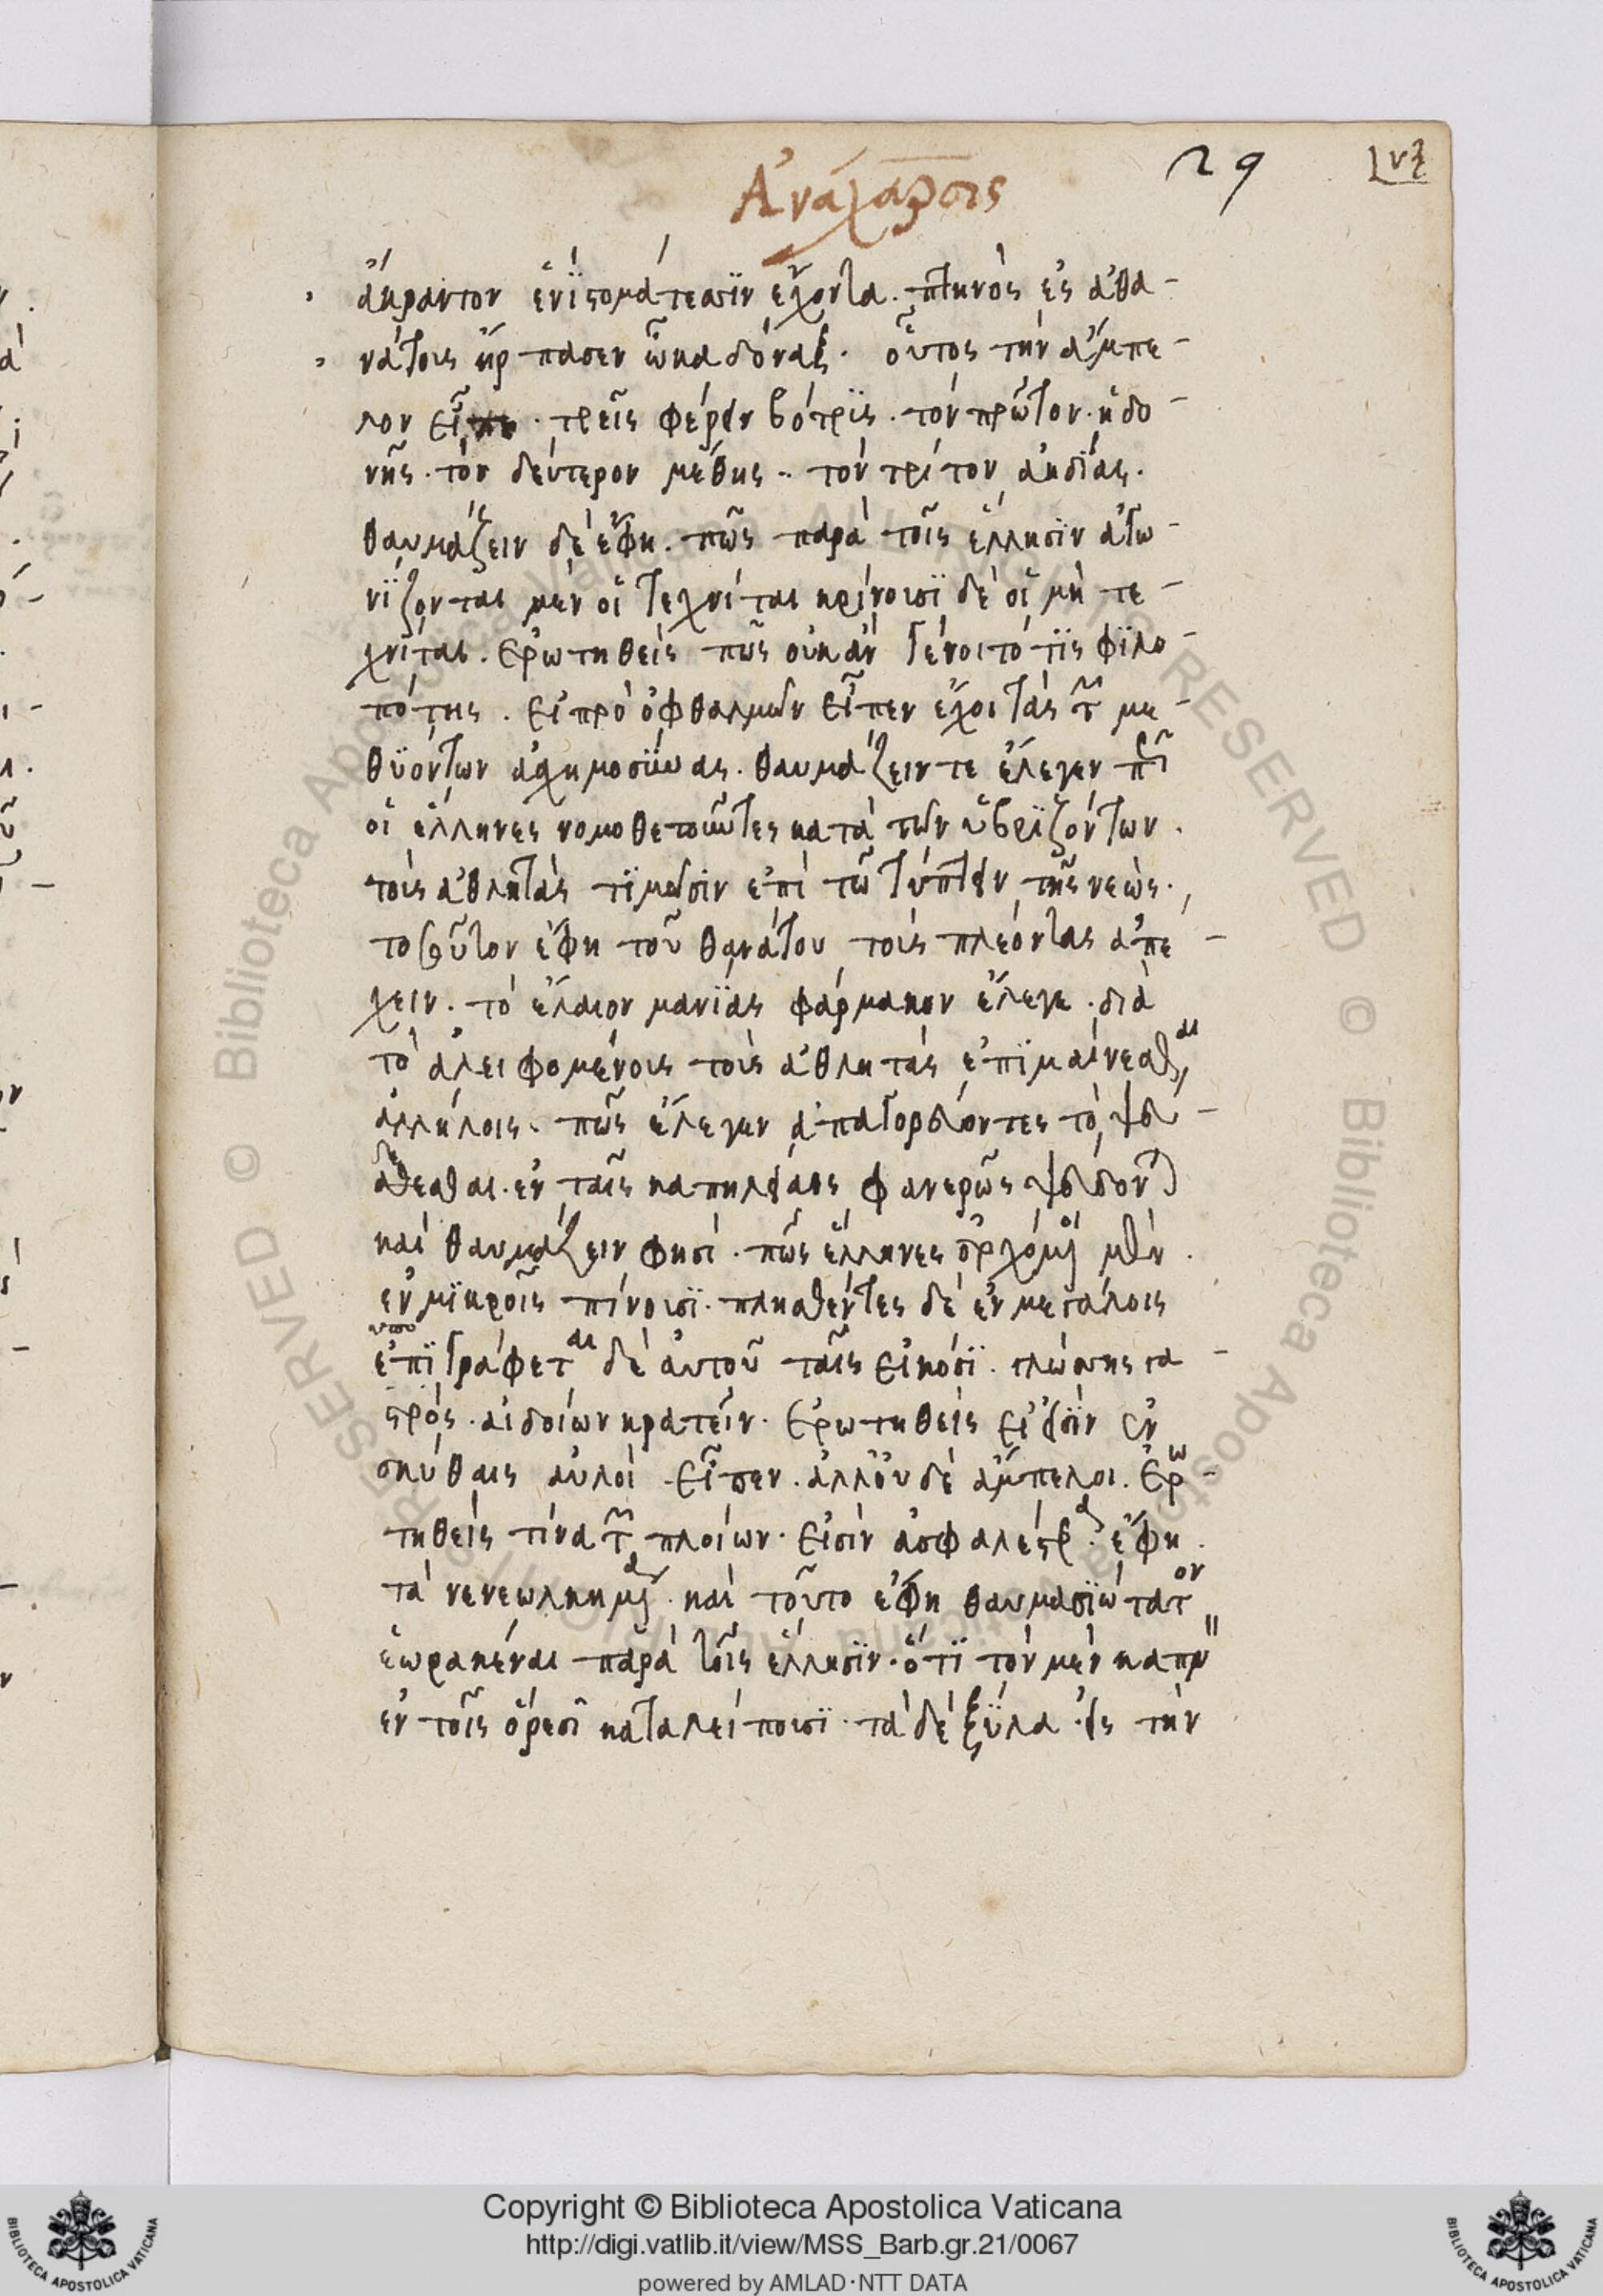 Ἀνάχαρσις
29
ἄκραντον ἐνὶ στομάτεσσϊν ἔχοντα. πτηνὸς ἐς ἀθα-
νάτοις ἥρπασεν ὦκα δόναξ. οὗτος τὴν ἄμπε-
λον εἶπε. τρεῖς φέρειν βότρϊς. τὸν πρῶτον. ἡδο-
νῆς. τὸν δεύτερον μέθης. τὸν τρίτον ἀηδίας.
θαυμάζειν δὲ ἔφη. πῶς παρὰ τοῖς ἕλλησϊν ἀγω-
νϊζονται μὲν οἱ τεχνίται κρίνουσϊ δὲ οἱ μὴ τε-
χνίται. Ερωτηθεὶς πῶς οὐκ ἂν γένοιτο τϊς φϊλο-
πότης. Εἰ πρὸ ὀφθαλμῶν εἶπεν ἔχοι τὰς τ̃ με-
θϋόντων ἀσχημοσϋνας. θαυμάζειν τε ἔλεγεν πῶς
οἱ ἕλληνες νομοθετοῦντες κατὰ τῶν ὑβρϊζόντων.
τοὺς ἀθλητὰς τϊμῶσϊν ἐπὶ τῶ τύπτειν
τοσοῦτον ἔφη τοῦ θανάτου τοὺς πλέοντας ἀπε-
χειν. τὸ ἔλαιον μανίας φάρμακον ἔλεγε. διὰ
τὸ ἀλειφομένους τοὺς ἀθλητὰς ἐπϊμαίνεσθαι
ἀλλήλοις. πῶς ἔλεγεν ἀπαγορεύοντες τὸ ψεύ-
δεσθαι. ἐν ταῖς καπηλείαις φανερῶς ψεύδονται
καὶ θαυμάζειν φησὶ. πῶς ἕλληνες ἀρχόμ(εν)οι μὲν.
ἐν μϊκροῖς πίνουσϊ. πλησθέντες δὲ ἐν μεγάλοις
ἐπϊγράφεται δὲ αὐτοῦ ταῖς εἰκόσϊ. γλώσσης γα-
στρός. αἰδοίων κρατεῖν. Ερωτηθεὶς εἰ εἰσὶν ἐν
σκύθαις αὐλοὶ. εἶπεν. ἀλλ' οὐδὲ ἄμπελοι. Ερω-
τηθεὶς τίνα τ̃ πλοίων. εἰσὶν ἀσφαλέστερα. ἔφη.
τὰ νενεωλκημ(έν)α. καὶ τοῦτο ἔφη θαυμασϊώτατον
ἑωρακέναι παρὰ τοῖς ἕλλησϊν. ὅτϊ τὸν μὲν καπν
ἐν τοῖς ὄρεσϊ καταλείπουσϊ. τὰ δὲ ξϋλα εἰς τὴν
Copyright © Biblioteca Apostolica Vaticana
http://digi.vatlib.it/view/MSS_Barb.gr.21/0067
powered by AMLAD·NTT DATA